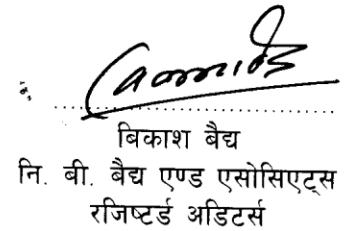 बिकाश बैद्य
नि. बी. बैद्य एण्ड एसोसिएट्स
रजिष्टर्ड अडिटर्स